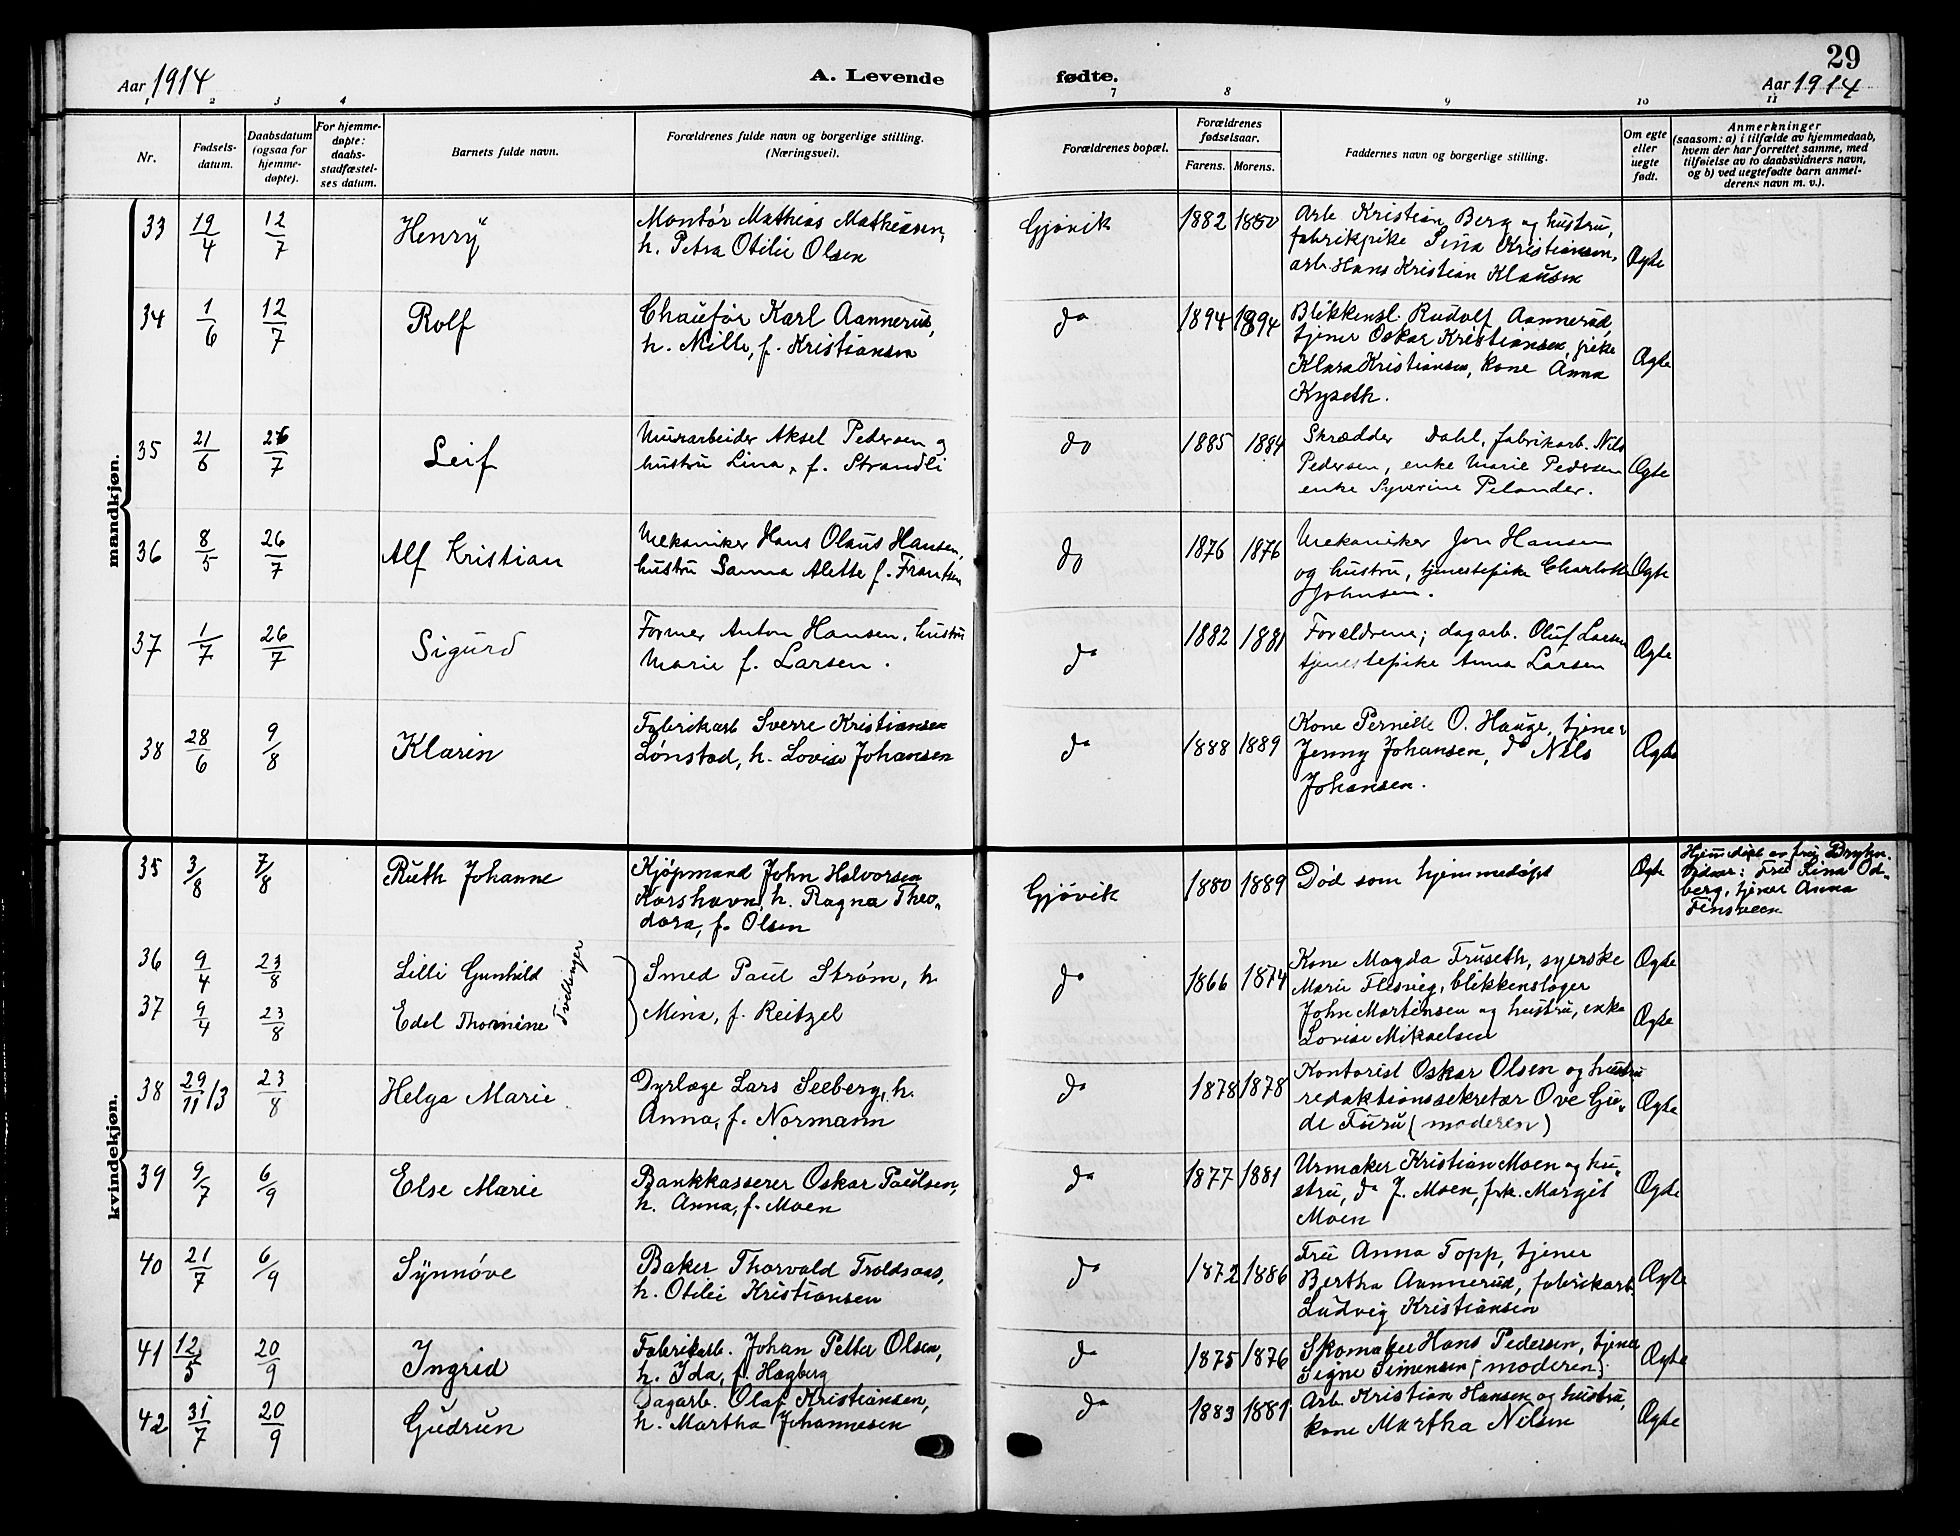 29
Aar 1914
A. Levende
fødte.
Aar 1914
1 2 3 4
7 8 9 10 11
Nr.
Fødselsdatum.
Daabsdatum (ogsaa for hjemmedøpte).
For hjemmedøpte: daabsstadfæstelses datum.
Barnets fulde navn.
Forældrenes fulde navn og borgerlige stilling.
(Næringsvei).
Forældrenes bopæl.
Forældrenes fødselsaar.
Farens. Morens.
Faddernes navn og borgerlige stilling.
Om egte eller uegte født.
Anmerkninger
(saasom: a) i tilfælde av hjemmedaab,
hvem der har forrettet samme, med
tilføielse av to daabsvidners navn,
og b) ved uegtefødte barn anmelderens navn m. v.).
mandkjøn.
33 19/4 12/7 Henry
Montør Mathias Mathiasen,
h. Petra Otilie Olsen
Gjøvik 1882 1880
Arb. Kristian Berg og hustru,
fabrikpike Sina Kristiansen,
arb. Hans Kristian Klausen
Ægte
34 1/6 12/7 Rolf
Chaufør Karl Aannerud,
h. Milli, f. Kristiansen
do 1894 1894
Blikkensl. Rudolf Aannerud,
tjener Oskar Kristiansen, pike
Klara Kristiansen, kone Anna
Kyseth.
Ægte
35 21/6 26/7 Leif
Murarbeider Aksel Pedersen og
hustru Lina, f. Strandli
do 1885 1884
Skrædder Dahl, fabrikarb. Nils
Pedersen, enke Marie Pedersen
enke Syverine Pelander.
Ægte
36 8/5 26/7 Alf Kristian
Mekaniker Hans Olaus Hansen,
hustru Sanna Alette f. Frantsen
do 1876 1876
Mekaniker Jon Hansen
og hustru, tjenestepike Charlotte
Johnsen.
Ægte
37 1/7 26/7 Sigurd
Former Anton Hansen, hustru
Marie f. Larsen.
do 1882 1881
Forældrene; dagarb. Oluf Larsen
tjenestepike Anna Larsen
Ægte
38 28/6 9/8 Klarin
Fabrikarb Sverre Kristiansen
Lønstad, h. Lovise Johansen
do 1888 1889
Kone Pernille O. Hauge, tjener
Jenny Johansen, do Nils
Johansen.
Ægte
kvindekjøn.
35 3/8 7/8 Ruth Johanne
Kjøpmand John Halvorsen
Korshavn, h. Ragna Theodora, f. Olsen
Gjøvik 1880 1889
Død som hjemmedøpt
Ægte
Hjemmedøpt av
Vidner: Fru Lina Ødberg, tjener Anna
Finsveen
36 9/4 23/8 Lilli Gunhild
37 9/4 23/8 Edel Thomine
Tvillinger
Smed Paul Strøm, h.
Mina, f. Reitzel
do 1866 1874
Kone Magda Fruseth, syerske
Marie Flesvig, blikkenslager
John Martinsen og hustru, enke
Lovise Mikaelsen
Ægte
Ægte
38 29/11 13 23/8 Helga Marie
Dyrlæge Lars Seeberg, h.
Anna, f. Normann
do 1878 1878
Kontorist Oskar Olsen og hustru
redaktionssekretær Ove Gude Furu (moderen)
Ægte
39 9/7 6/9 Else Marie
Bankkasserer Oskar Paulsen,
h. Anna, f. Moen
do 1877 1881
Urmaker Kristian Moen og hustru, do J. Moen, frk. Margit
Moen
Ægte
40 21/7 6/9 Synnøve
Baker Thorvald Troldsaas,
h. Otilie Kristiansen
do 1872 1886
Fru Anna Topp, tjener
Bertha Aannerud, fabrikarb.
Ludvig Kristiansen
Ægte
41 12/5 20/9 Ingrid
Fabrikarb. Johan Petter Olsen,
h. Ida, f. Hagberg
do 1875 1876
Skomaker Hans Pedersen, tjener
Signe Simensen (moderen).
Ægte
42 31/7 20/9 Gudrun
Dagarb. Olaf Kristiansen,
h. Martha Johannesen
do 1883 1881
Arb. Kristian Hansen og hustru,
kone Martha Nilsen
Ægte